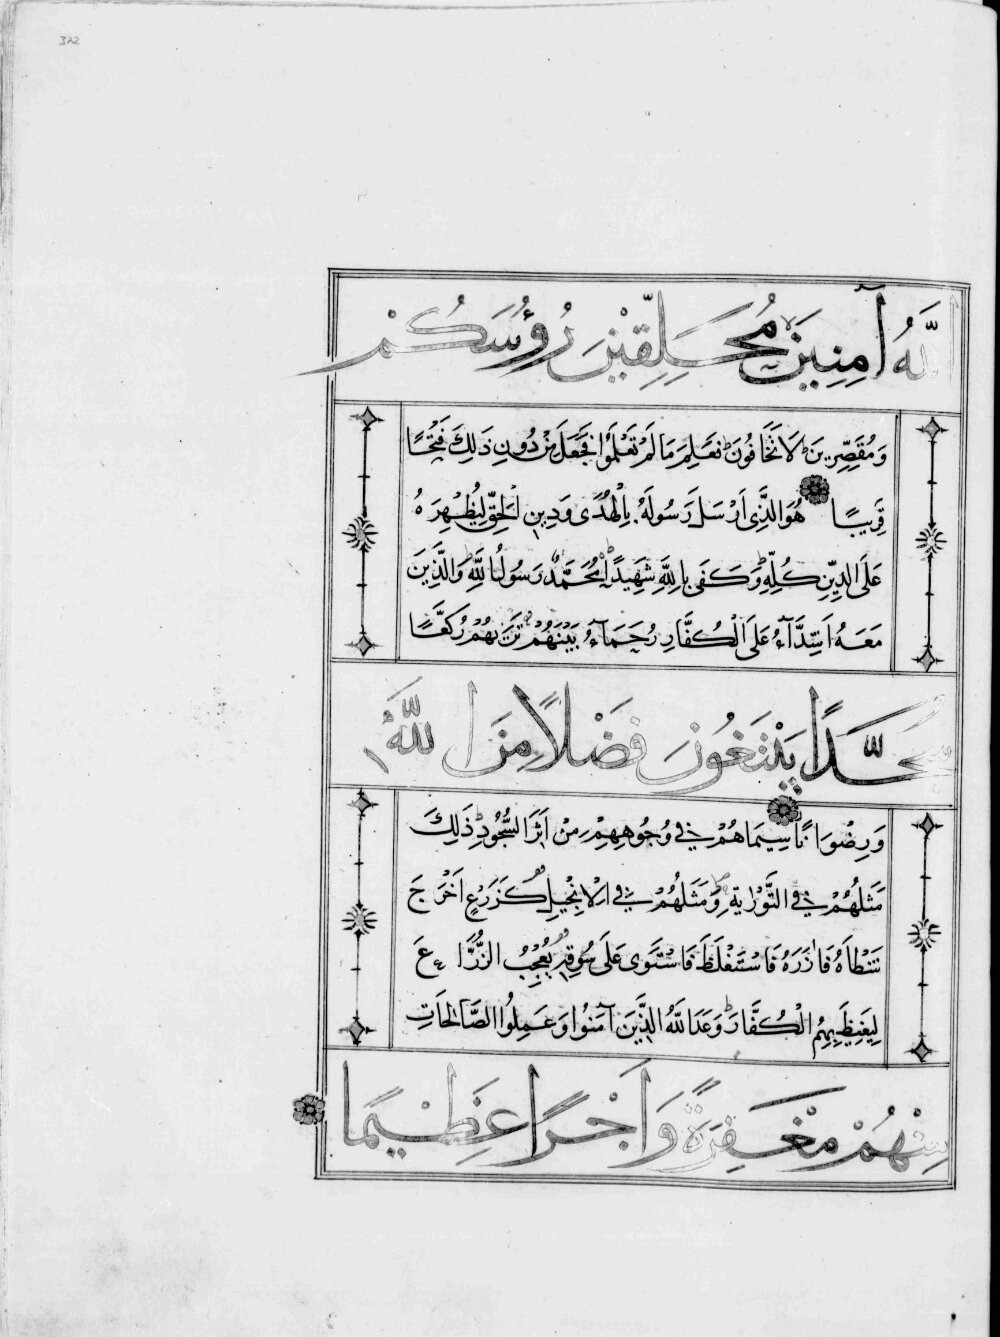 322
اللَّهُ آمِنِينَ مُحَلِّقِينَ رُؤُسَكُمْ
وَمُقَصِّرِينَ لَا تَخَافُونَ فَعَلِمَ مَا لَمْ تَعْلَمُوا فَجَعَلَ مِنْ دُونِ ذَلِكَ فَتْحًا
قَرِيبًا هُوَ الَّذِي أَرْسَلَ رَسُولَهُ بِالْهُدَى وَدِينِ الْحَقِّ لِيُظْهِرَهُ
عَلَى الدِّينِ كُلِّهِ وَكَفَى بِاللَّهِ شَهِيدًا مُحَمَّدٌ رَسُولُ اللَّهِ وَالَّذِينَ
مَعَهُ أَشِدَّآءُ عَلَى الْكُفَّارِ رُحَمَآءُ بَيْنَهُمْ تَرَيهُمْ رُكَّعًا
سُجَّدًا يَبْتَغُونَ فَضْلًا مِنَ اللَّهِ
وَرِضْوَانًا سِيمَاهُمْ فِي وُجُوهِهِمْ مِنْ أَثَرِ السُّجُودِ ذَلِكَ
مَثَلُهُمْ فِي التَّوْرٰيةِ وَمَثَلُهُمْ فِي الْإِنْجِيلِ كَزَرْعٍ أَخْرَجَ
شَطْأَهُ فَآزَرَهُ فَاسْتَغْلَظَ فَاسْتَوَى عَلَى سُوقِهِ يُعْجِبُ الزُّرَّاعَ
لِيَغِيظَ بِهِمُ الْكُفَّارَ وَعَدَ اللَّهُ الَّذِينَ آمَنُوا وَعَمِلُوا الصَّالِحَاتِ
مِنْهُمْ مَغْفِرَةً وَأَجْرًا عَظِيمًا